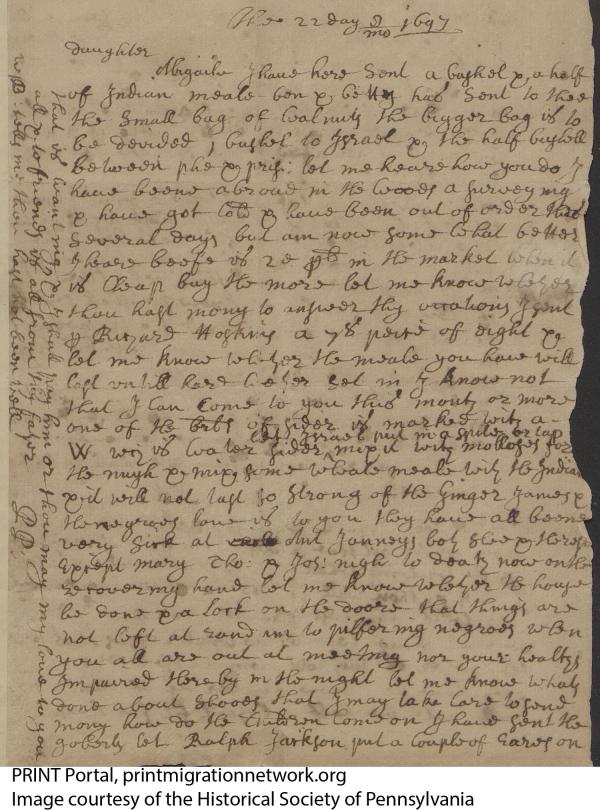 The 22 day 8 mo 1697
daughter
Abigaile I have here sent a bushel & a half
of Indian meale ben & betty has sent to thee
the small bag of walnuts the bigger bag is to
be devided 1 bushel to Israel & the half bushell
between phe & pris: let me heare how you do I
have beene abroad in the woods a surveying
& have got cold & have been out of order this
several days but am now some what better
I heare beefe is 2d pd in the market when it
is cheap buy the more let me know whether
thou hast mony to answer thy occations I sent
p Richard Hoskins a 7s peice of eight &
let me know whether the meale you have will
last untill hard set in I know not
that I can come to you this mouth or more
one of the brls of sider is marked with a
W wch is water sider let Israel put in a spile or tap
mix it with molloses for
the nigh & mix some wheate meale with the Indian
& it will not tast so strong of the ginger James &
the negroes love is to you they have all beene
very sick at out Janneys both shee &
Except mary Tho: & Jos: nigh to death now on the
recovering hand let me know whether the house
be done & a lock on the doore that things are
not left at randum to pilfering negroes when
you all are out at meeting nor your healths
Impaired thereby in the night let me know whats
done about shooes that I may take care to send
mony how do the children come on I have sent the
goberts let Ralph Jackson put a couple of Eares on
that is wanting & I shall pay him or thou may my love to you
all & to friends is all from thy father P P
WB: tells me thou hast not been well
PRINT Portal, printmigrationnetwork.org
Image courtesy of the Historical Society of Pennsylvania